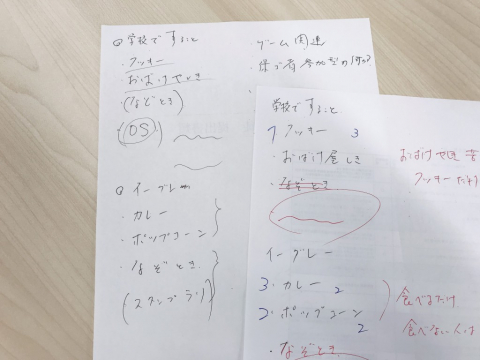 学校ですること
・クッキー
・おばけやしき
・(なぞとき)
イーグレ
・カレー
・ポップコーン
・なぞとき
(スタンプラリー)
・ゲーム関連
・保ゴ者参加型の
学校ですること
1 クッキー 3
・おばけ屋しき
・なぞとき
イーグレー
3・カレー 2
2・ポップコーン 2
・なぞとき
おばけやしき
クッキー
食べるだけ
食べない人は